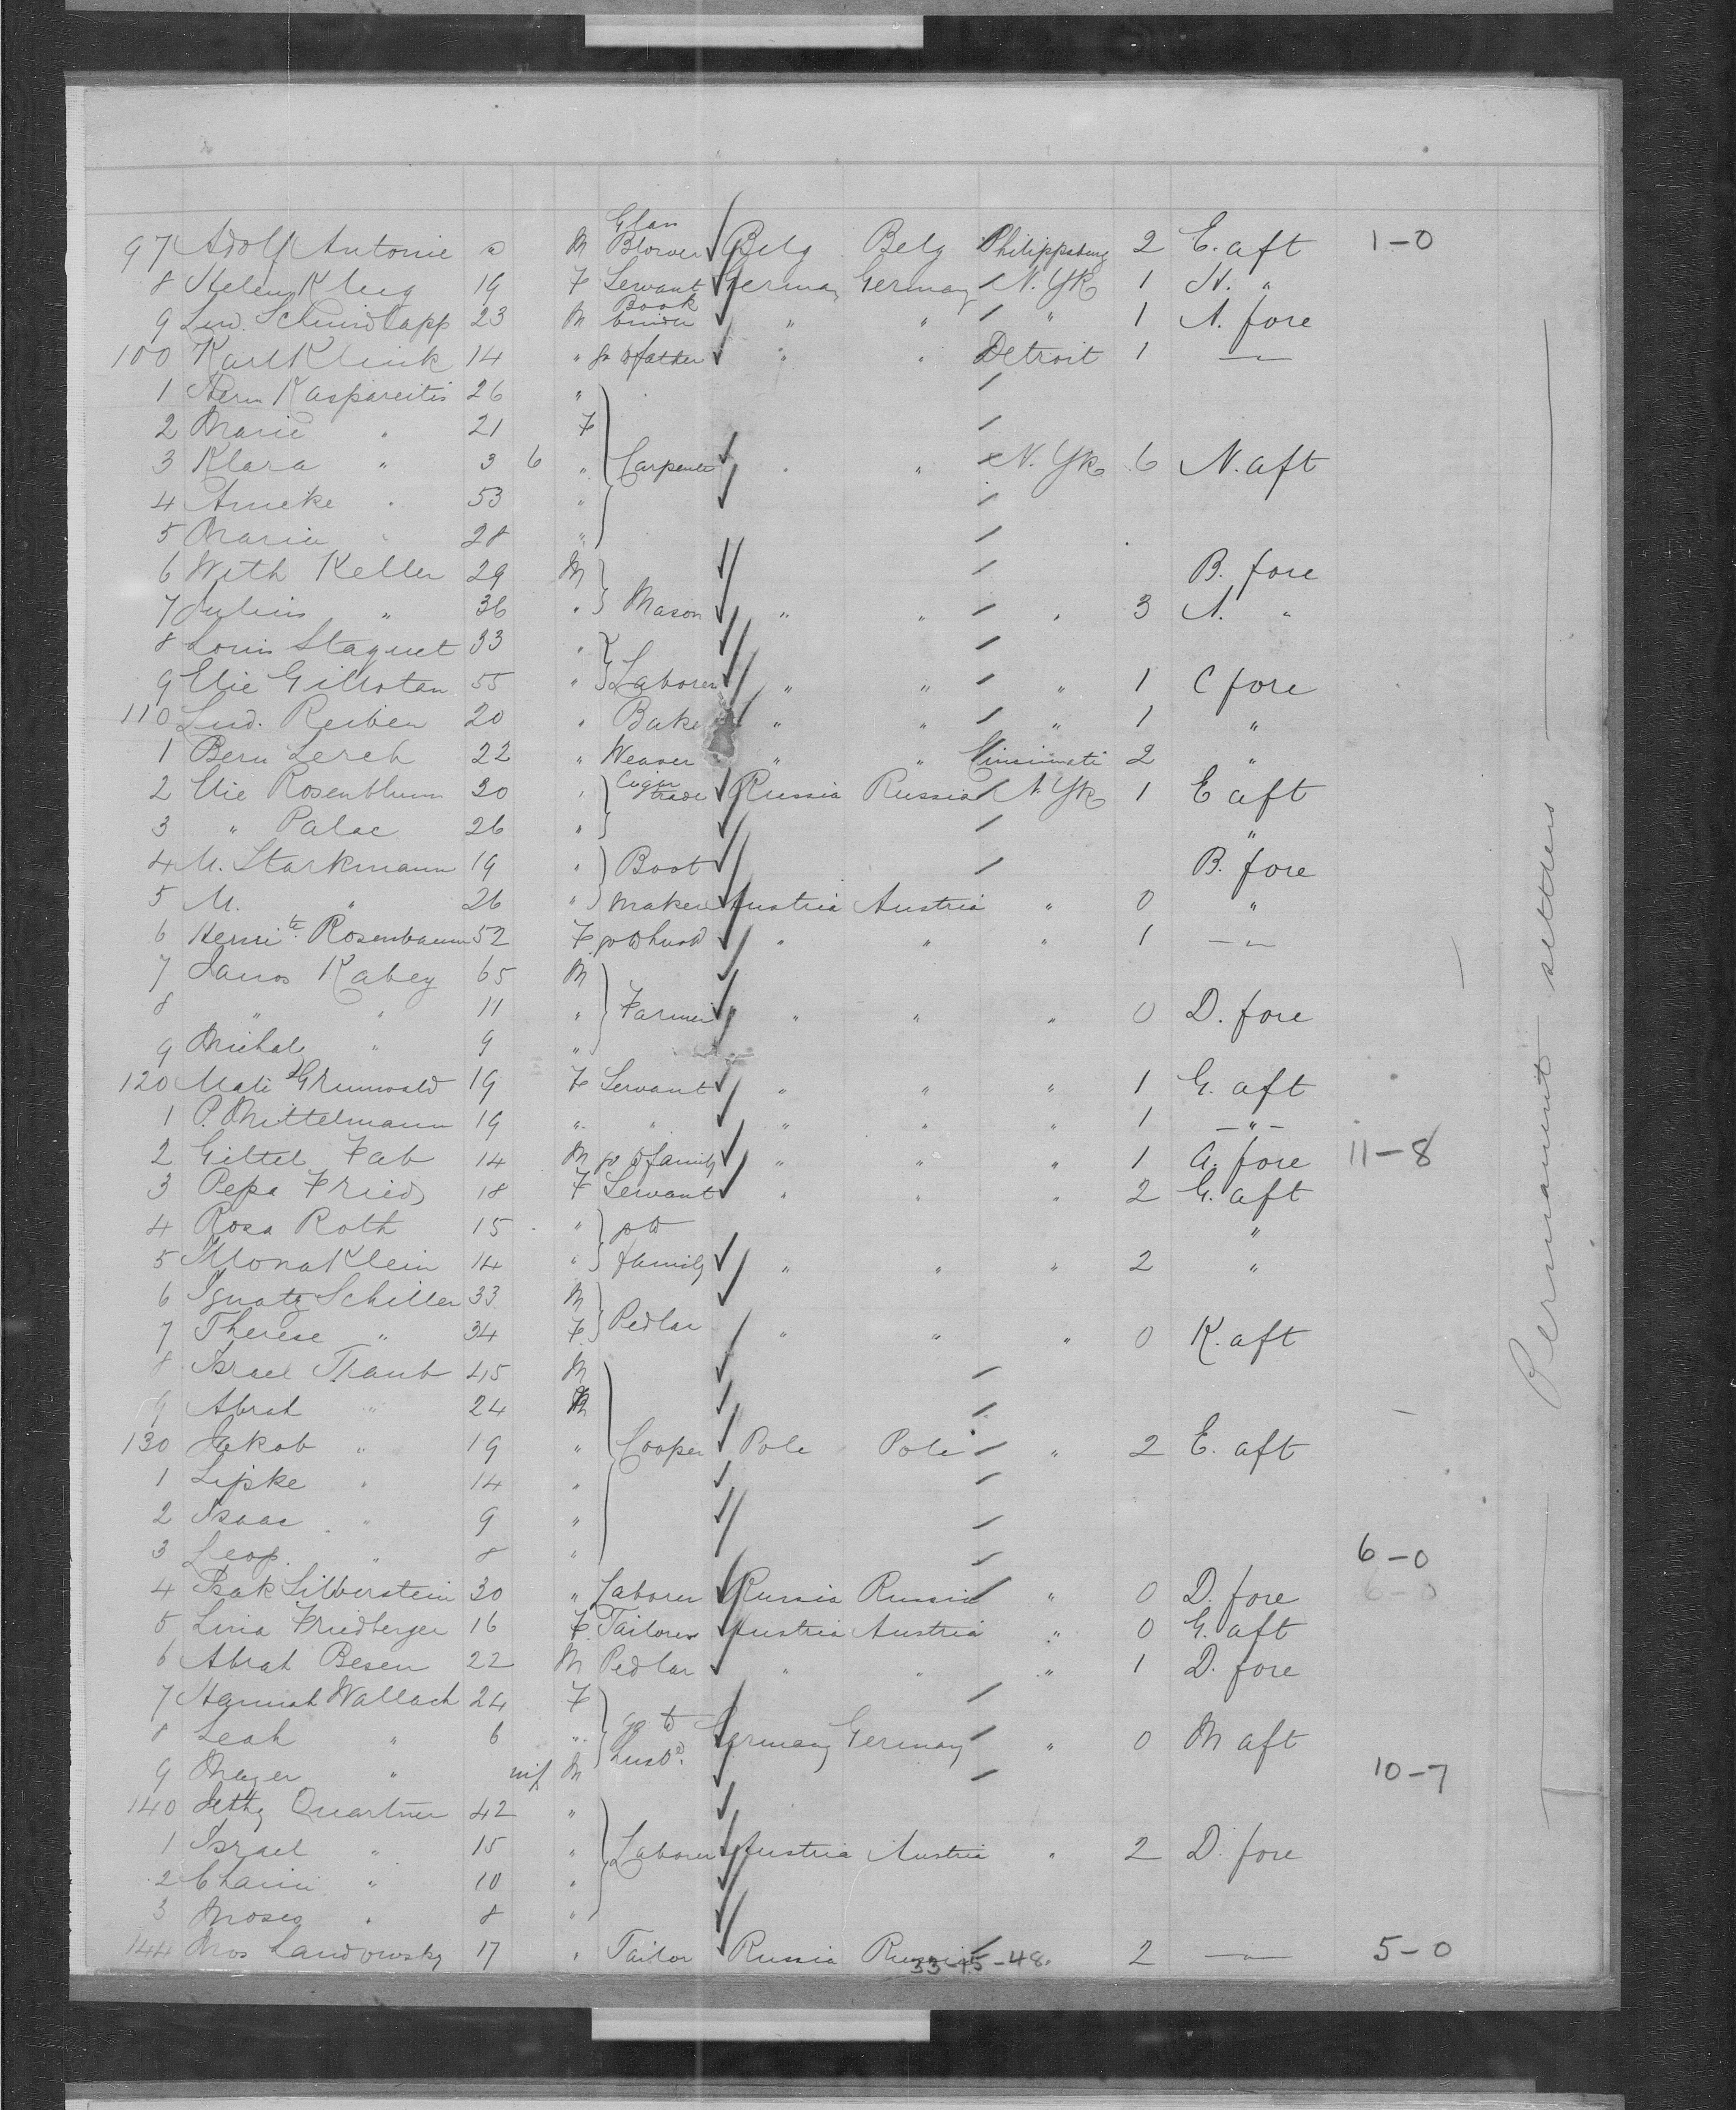 97 Adolf Antonie " M Glass Blower Belg Belg Philippsburg 2 E. aft 1-0
8 Helen Klug 19 F Servant Germany Germany N. Yk 1 H. "
9 Lud. Schmidtapp 23 M Book binder " " " 1 A. fore
100 Karl Klink 14 " go to father " " Detroit 1 —"—
1 Herm Kaspareitis 26 "
2 Marie " 21 F
3 Klara " 3 6 " Carpenter " " N. Yk 6 N. aft
4 Anneke " 53 "
5 Maria " 28 "
6 With Keller 29 M B. fore
7 Julius " 36 " Mason " " " 3 A. "
8 Louis Staquet 33 "
9 Elie Gillotan 55 " Laborer " " " 1 C fore
110 Lud. Reiben 20 " Baker " " " 1 "
1 Bern Lerch 22 " Weaver " " Cincinnati 2 "
2 Elie Rosenblum 30 " Cigar trade Russia Russia N. Yk 1 E aft
3 " Palac 26 " "
4 M. Starkmann 19 " Boot B. fore
5 M. " 26 " maker Austria Austria " 0 "
6 Henrite Rosenbaum 52 F go to husbd " " " 1 —"—
7 Janos Kabey 65 M
8 " " 11 " Farmer " " " 0 D. fore
9 Michal " 9 "
120 Mali Grunwald 19 F Servant " " " 1 G. aft
1 P. Mittelmann 19 " " " " " 1 —"—
2 Gittel Fab 14 M go to family " " " 1 A. fore 11-8
3 Pepa Fried 18 F Servant " " " 2 G. aft
4 Rosa Roth 15 " go to "
5 Ilona Klein 14 " family " " " 2 "
6 Ignatz Schiller 33 M
7 Therese " 34 F Pedlar " " " 0 K. aft
8 Israel Traub 45 M
9 Abrah " 24 M
130 Jakob " 19 " Cooper Pole Pole " 2 E. aft
1 Lipke " 14 "
2 Isaac " 9 "
3 Leop. " 8 " 6-0
4 Isak Silberstein 30 " Laborer Russia Russia " 0 D. fore 6-0
5 Lina Friedberger 16 F Tailoress Austria Austria " 0 G. aft
6 Abrah Besen 22 M Pedlar " " " 1 D. fore
7 Hannah Wallach 24 F
8 Leah " 6 " go to husbd. Germany Germany " 0 M aft
9 Meyer " inf M 10-7
140 Jetty Quartner 42 "
1 Israel " 15 " Laborer Austria Austria " 2 D. fore
2 Chaim " 10 "
3 Moses " 8 "
144 Mos Landowsky 17 " Tailor Russia Russia 2 —"— 5-0
33-15-48.
Permanent settlers